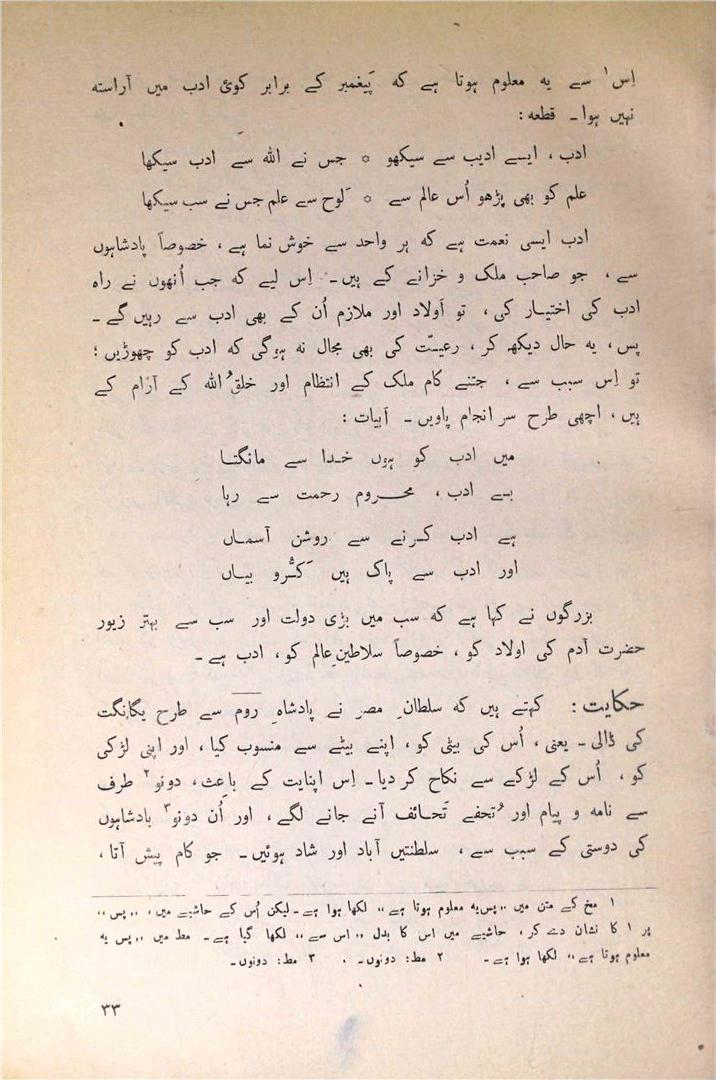 اِس۱ سے یہ معلوم ہوتا ہے کہ پَیغمبر کے برابر کوئی ادب میں آراستہ
نہیں ہوا ـ قطعہ :
ادب ، ایسے ادیب سے سیکھو * جس نے اللہ سے ادب سیکھا
علم کو بھی پڑھو اُس عالم سے * لَوح سے علم جس نے سب سیکھا
ادب ایسی نعمت ہے کہ ہر واحد سے خوش نما ہے ، خصوصاً پادشاہوں
سے ، جو صاحب ملک و خزانے کے ہیں ـ اِس لیے کہ جب اُنھوں نے راہ
ادب کی اختیار کی ، تو اَولاد اور ملازم اُن کے بھی ادب سے رہیں گے ـ
پس ، یہ حال دیکھ کر ، رعیّت کی بھی مجال نہ ہوگی کہ ادب کو چھوڑیں ؛
تو اِس سبب سے ، جتنے کام ملک کے انتظام اور خلقُ اللہ کے آرام کے
ہیں ، اچھی طرح سر انجام پاویں ـ اَبیات :
میں ادب کو ہوں خدا سے مانگتا
بے ادب ، محروم رحمت سے رہا
ہے ادب کرنے سے روشن آسماں
اور ادب سے پاک ہیں کَرُّو بیاں
بزرگوں نے کہا ہے کہ سب میں بڑی دولت اور سب سے بہتر زیور
حضرت آدم کی اولاد کو ، خصوصاً سلاطینِ عالم کو ، ادب ہے ـ
حکایت : کہتے ہیں کہ سلطانِ مصر نے پادشاہِ روم سے طرح یگانگت
کی ڈالی ـ یعنی ، اُس کی بیٹی کو ، اپنے بیٹے سے منسوب کیا ، اور اپنی لڑکی
کو ، اُس کے لڑکے سے نکاح کر دیا ـ اِس اپنایت کے باعِث ، دونو۲ طرف
سے نامہ و پیام اور تُحفے تَحائف آنے جانے لگے ، اور اُن دونو۳ بادشاہوں
کی دوستی کے سبب سے ، سلطنتیں آباد اور شاد ہوئیں ـ جو کام پیش آتا ،
۱ مخ کے متن میں ,,پس یہ معلوم ہوتا ہے،، لکھا ہوا ہے ـ لیکن اُس کے حاشیے میں ، ,,پس،،
پر ۱ کا نشان دے کر ، حاشیے میں اس کا بدل ,,اس سے،، لکھا گیا ہے ـ مط میں ,,پس یہ
معلوم ہوتا ہے،، لکھا ہوا ہے ـ ۲ مط : دونوں ـ ۳ مط : دونوں ـ
۳۳